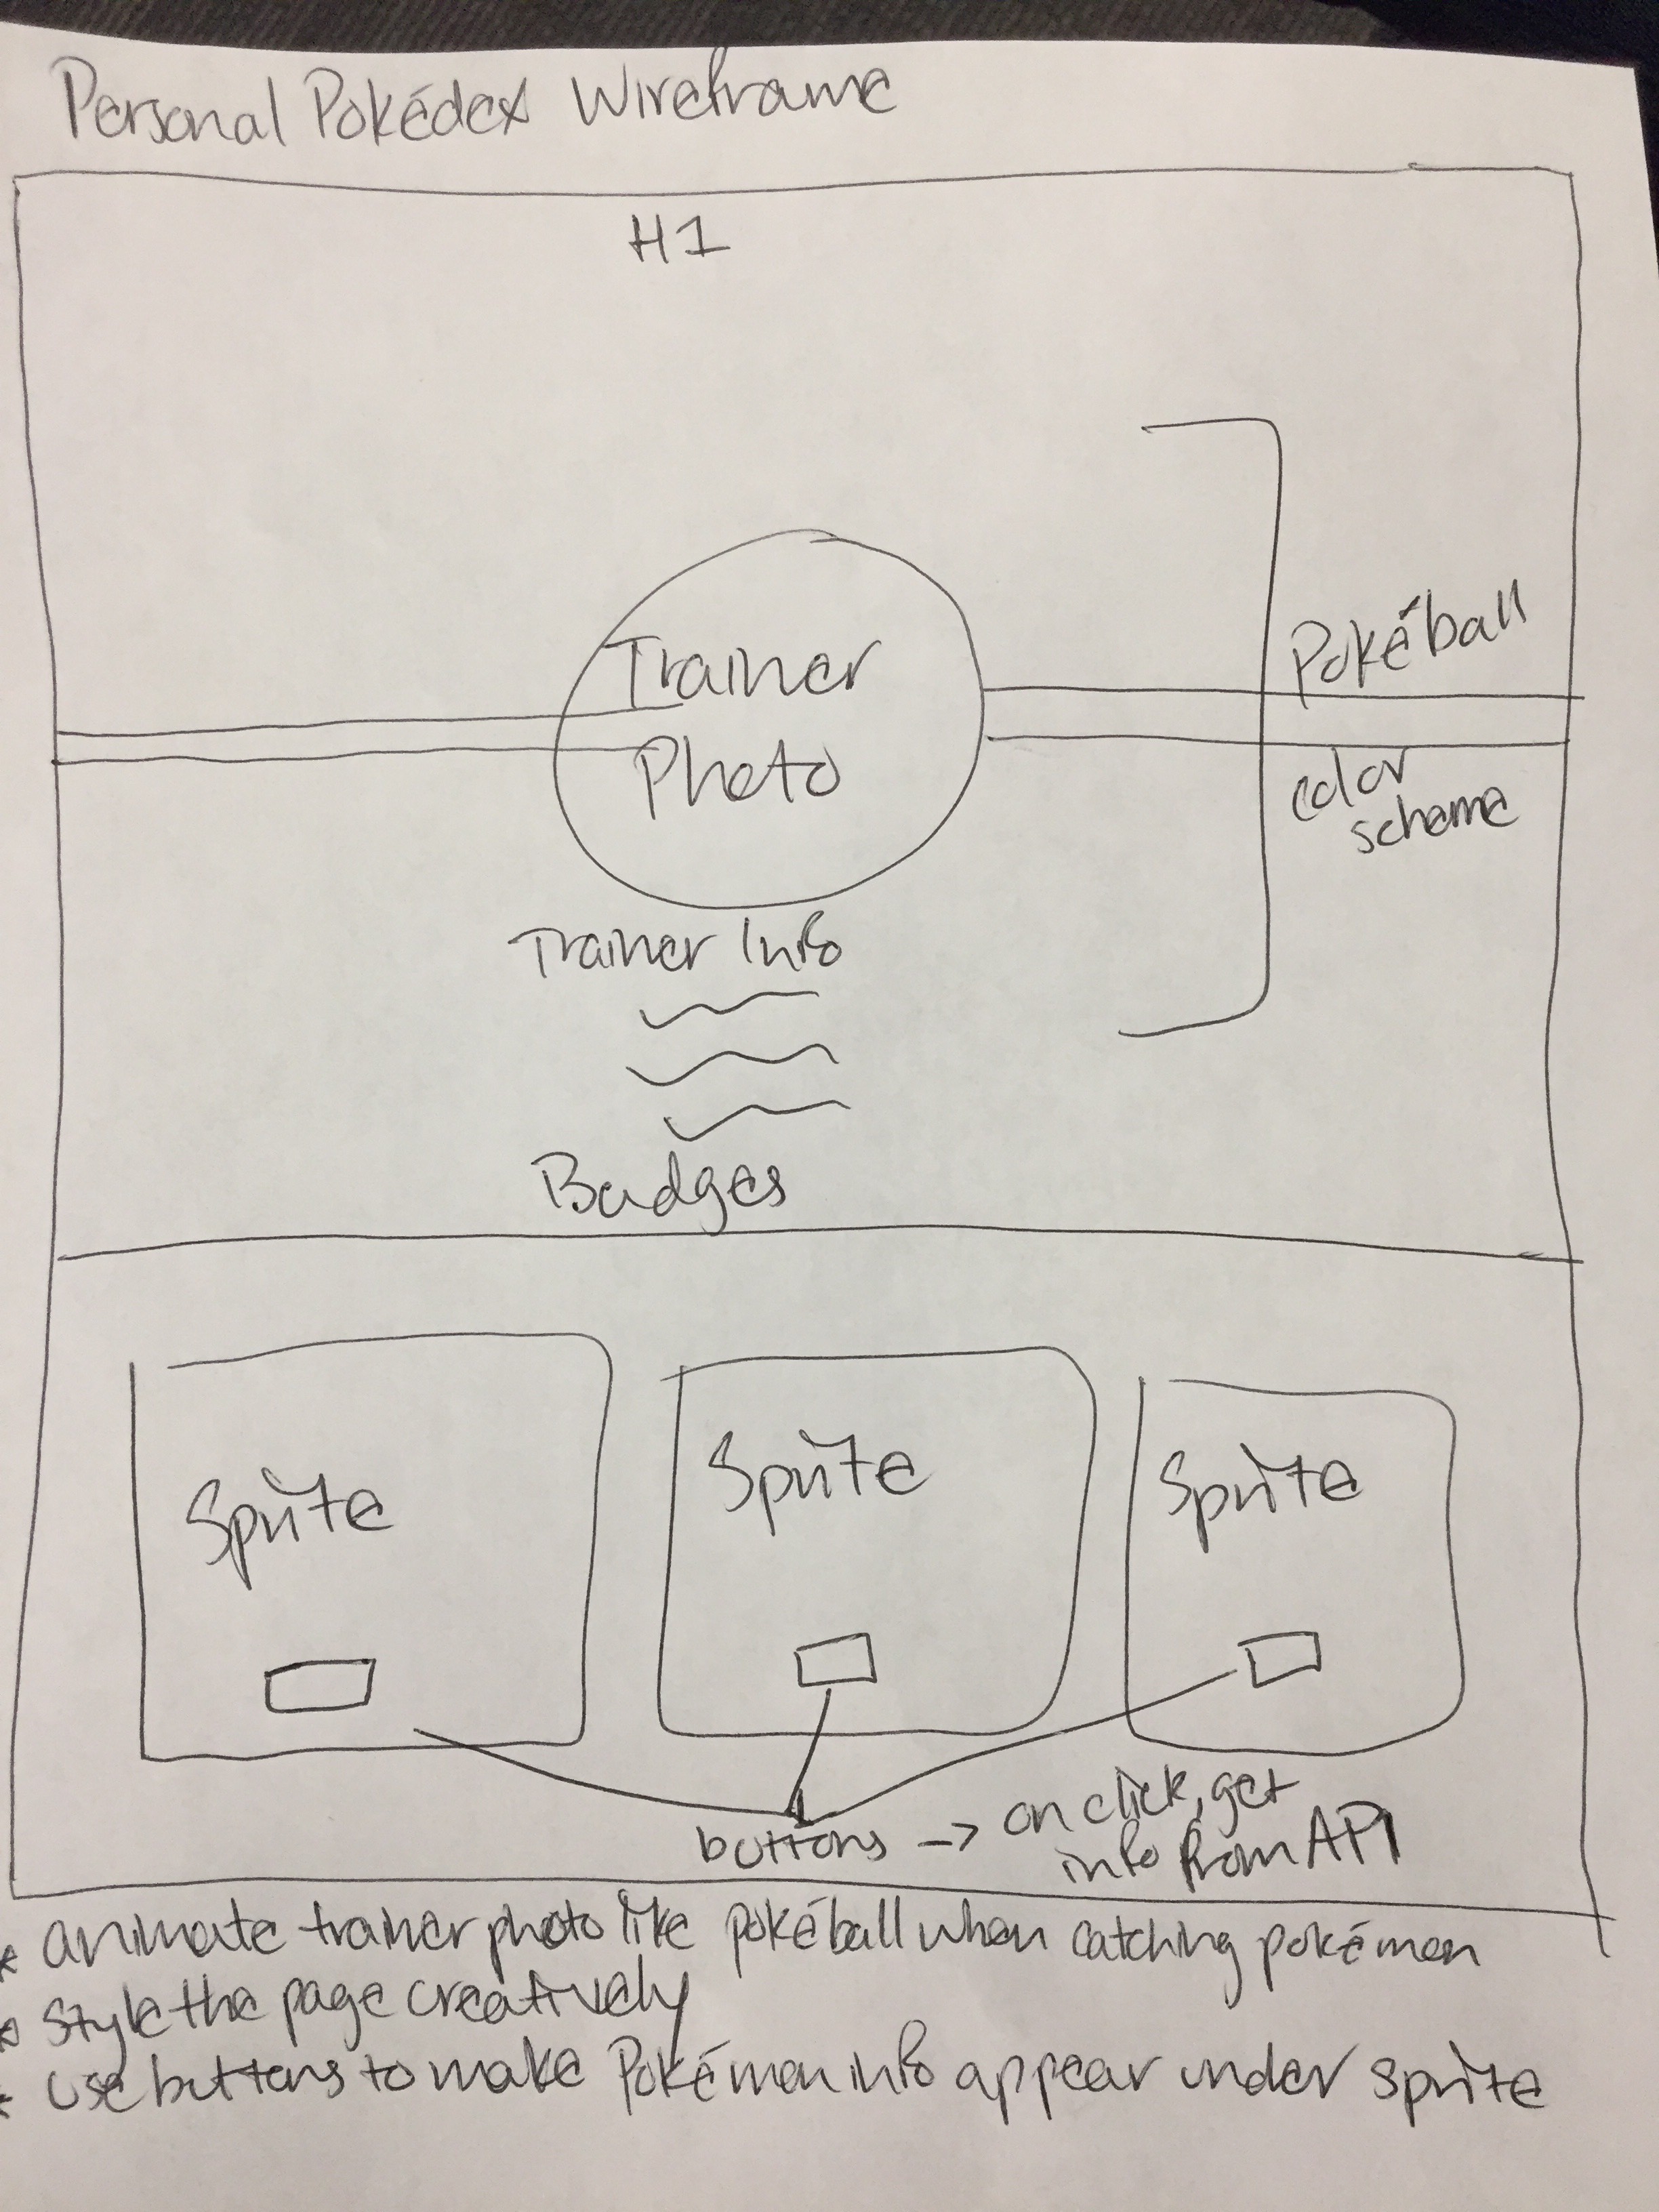 Personal Pokédex Wireframe
H1
Trainer
Photo
Pokéball
color
scheme
Trainer Info
Badges
Sprite
Sprite
Sprite
buttons -> on click, get
info from API
* animate trainer photo like pokéball when catching pokémon
* style the page creatively
* use buttons to make Pokémon info appear under sprite